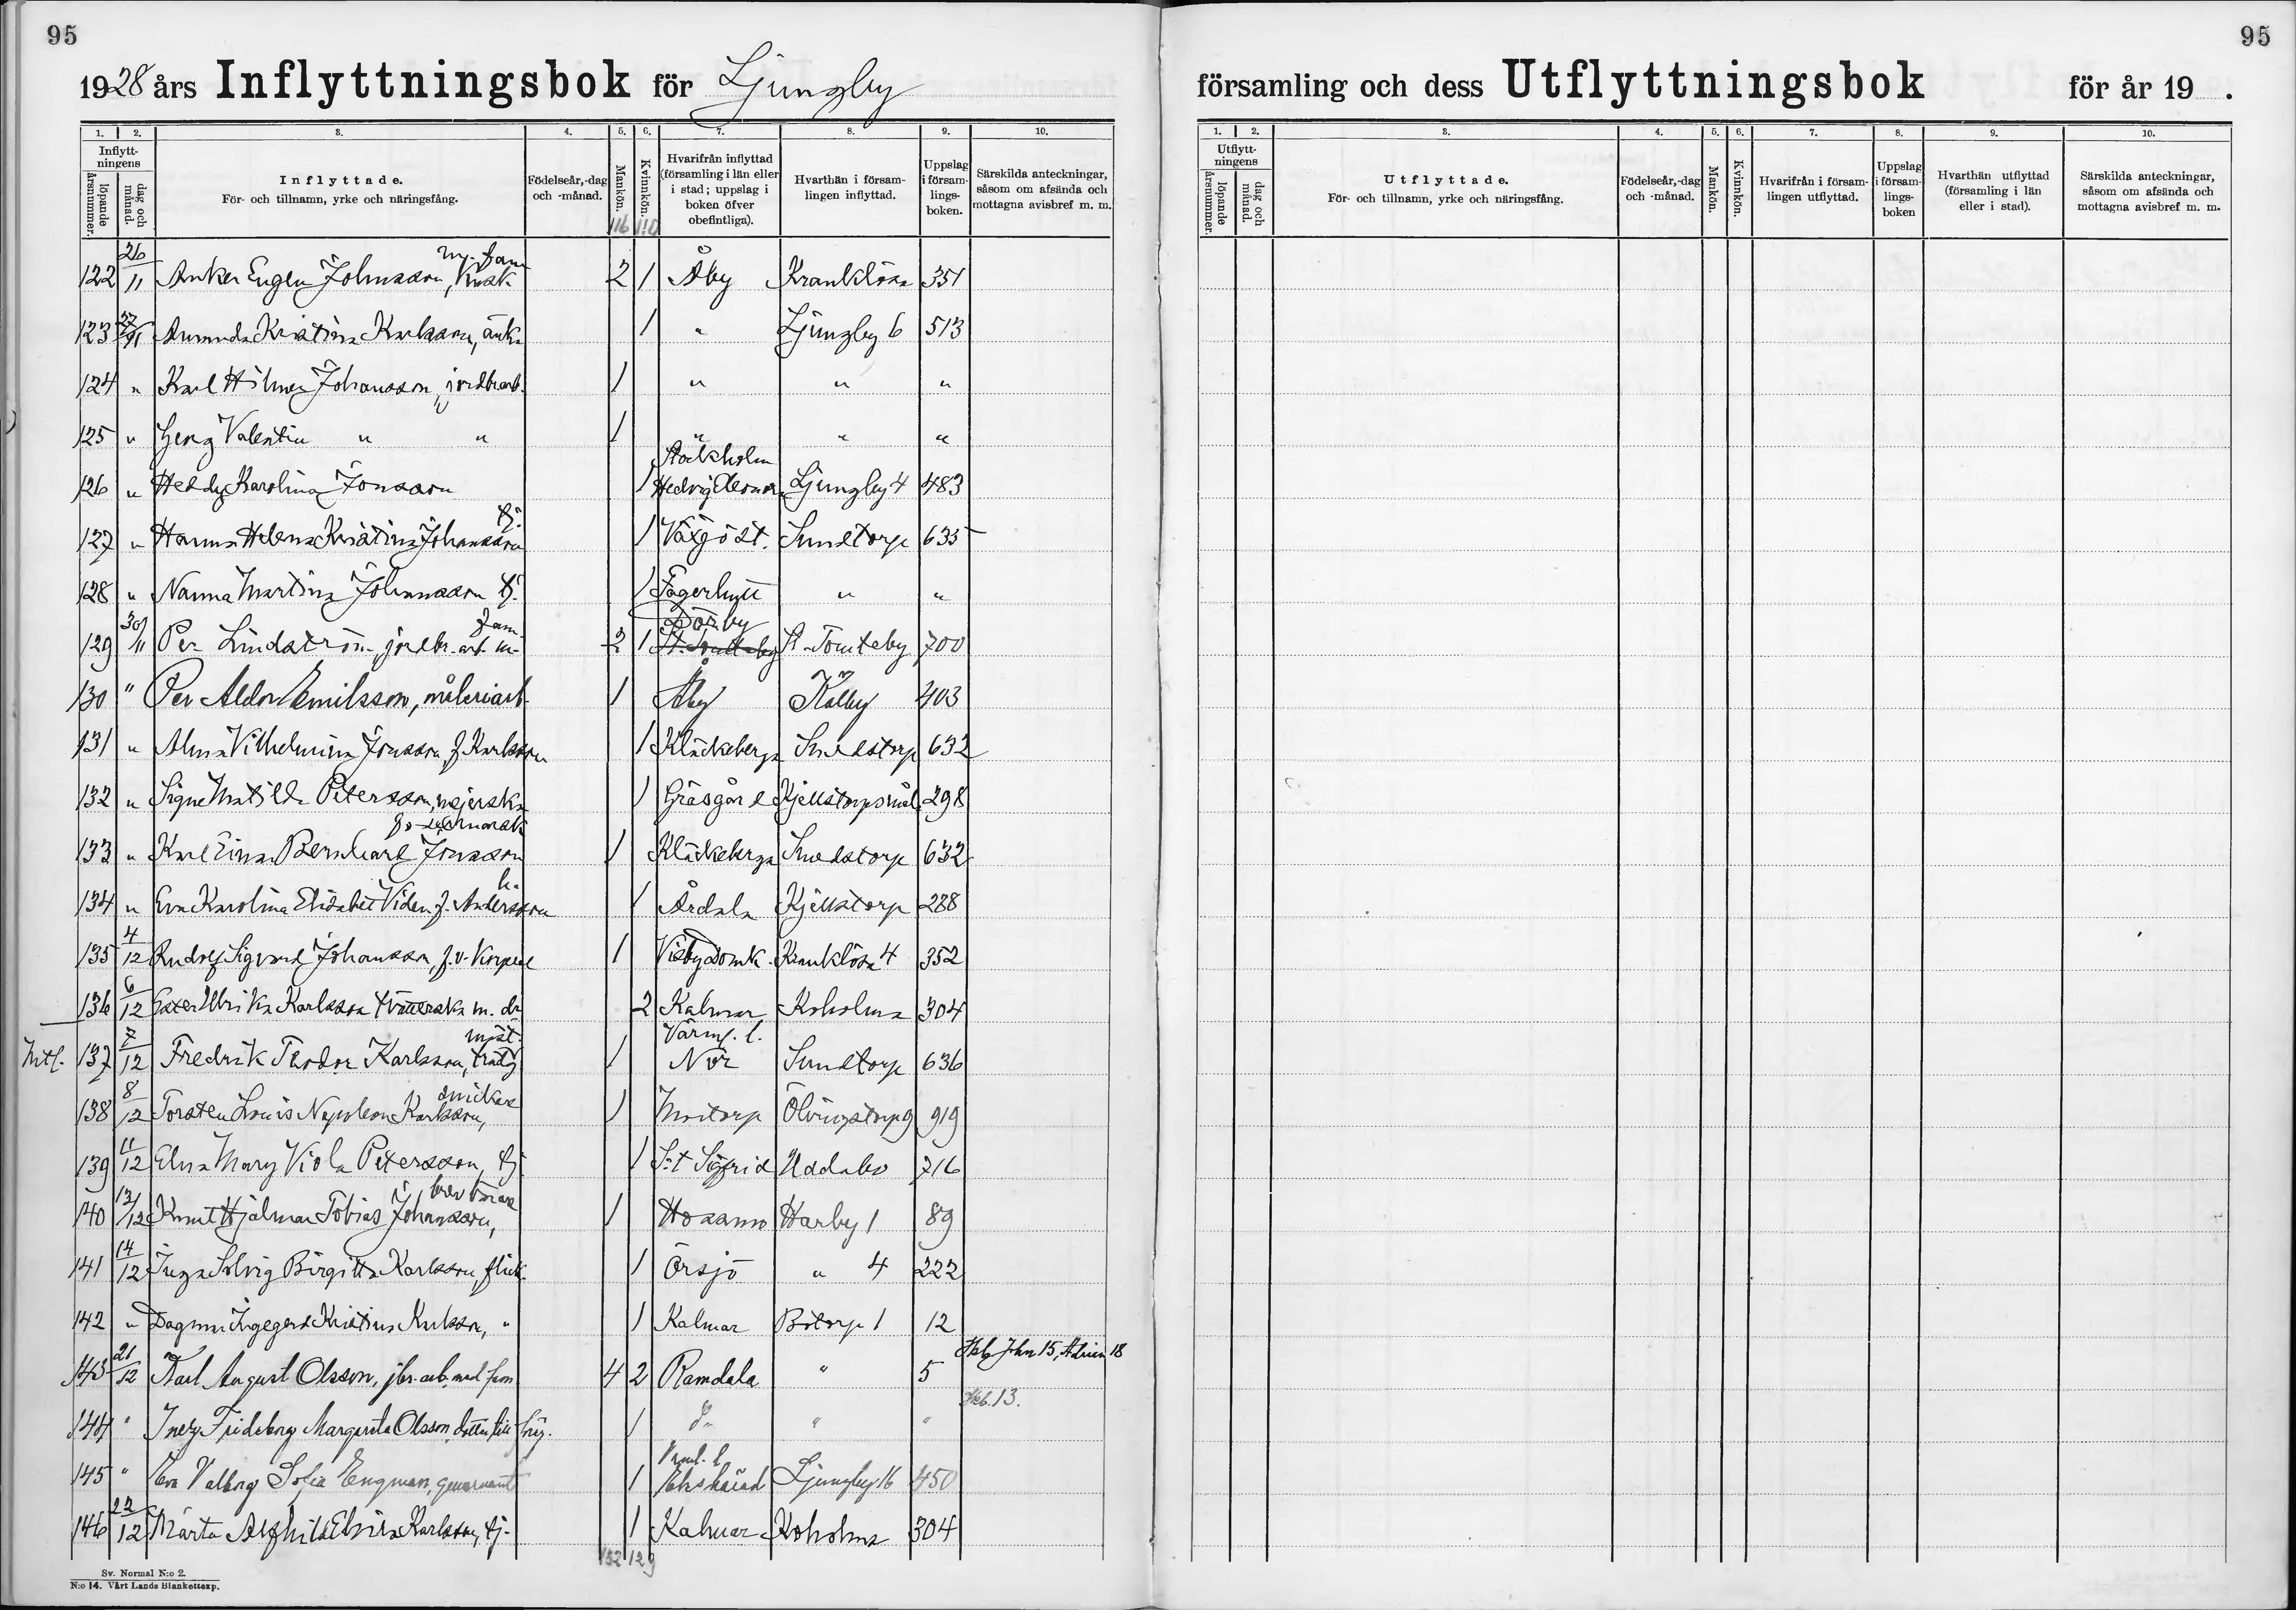 95
1928 års Inflyttningsbok för Ljungby
1. 2. 3. 4. 5. 6. 7. 8. 9. 10.
Inflyttningens
löpande årsnummer.
dag och månad.
Inflyttade.
För- och tillnamn, yrke och näringsfång.
Födelseår,-dag och -månad.
Mankön.
Kvinnkön.
Hvarifrån inflyttad (församling i län eller i stad; uppslag i boken öfver obefintliga).
Hvarthän i församlingen inflyttad.
Uppslag i församlingsboken.
Särskilda anteckningar, såsom om afsända och mottagna avisbref m. m.
116 110
122 26/11 Anker Eugen Johnsson, kusk m. fam 2 1 Åby Krankelösa 351
123 27/11 Amanda Kristina Karlsson, änka 1 " Ljungby 6 513
124 " Karl Hilmer Johansson, jordbr.arb. 1 " " "
125 " Georg Valentin " " 1 " " "
126 " Heddy Karolina Jonsson 1 Stockholm Hedvig Eleonora Ljungby 4 483
127 " Hanna Helena Kristina Johansson tj. 1 Växjö st. Smedtorp 635
128 " Nanna Martina Johansson tj. 1 Fagerhult " "
129 30/11 Per Lindström, jordbr.-arb. m. fam. 2 1 Dörby St. Tomteby St. Tomteby 700
130 " Per Aldor Emilsson, måleriarb. 1 Åby Källby 403
131 " Alma Vilhelmina Jonsson f. Karlsson 1 Kläckeberga Smedstorp 632
132 " Signe Matilda Petersson, mejerska 1 Gräsgård Kjellstorpsmåla 298
133 " Karl Einar Bernhard Jonsson 1 Kläckeberga Smedstorp 632
134 " Eva Karolina Elisabet Viden f. Andersson h. 1 Årdala Kjellstorp 288
135 4/12 Rudolf Sigvard Johansson, f.v. Korpral 1 Visby Domk. Krankelösa 4 352
136 6/12 Ester Ulrika Karlsson tvätterska m. dr 2 Kalmar Koholma 304
Mtl. 137 7/12 Fredrik Teodor Karlsson, trädg mäst. 1 Värml. l. Nor Smedtorp 636
138 8/12 Torsten Louis Napoleon Karlsson, snickare 1 Mortorp Ölvingstorp 9 919
139 11/12 Elna Mary Viola Petersson, tj 1 S:t Sigfrid Uddabo 716
140 13/12 Knut Hjalmar Tobias Johansson, brevbärare 1 Hossmo Harby 1 89
141 14/12 Inga Solvig Birgitta Karlsson, flick. 1 Örsjö " 4 222
142 " Dagmar Ingegerd Kristina Karlsson, " 1 Kalmar Botorp 1 12
143 21/12 Karl August Olsson, jbr.-arb. med fam 4 2 Ramdala " 5 15, 18
144 " Inez Frideborg Margareta Olsson, dotter till förig. 1 D:o " " 13.
145 " Eva Valborg Sofia Engman, guvernant 1 Ekshärad Ljungby 16 450
146 22/12 Märta Alfhild Elvira Karlsson, tj. 1 Kalmar Koholma 304
132 129
Sv. Normal N:o 2.
N:o 14. Vårt Lands Blankettexp.
95
församling och dess Utflyttningsbok för år 19 .
1. 2. 3. 4. 5. 6. 7. 8. 9. 10.
Utflyttningens
löpande årsnummer.
dag och månad.
Utflyttade.
För- och tillnamn, yrke och näringsfång.
Födelseår,-dag och -månad.
Mankön.
Kvinnkön.
Hvarifrån i församlingen utflyttad.
Uppslag i församlingsboken
Hvarthän utflyttad (församling i län eller i stad).
Särskilda anteckningar, såsom om afsända och mottagna avisbref m. m.